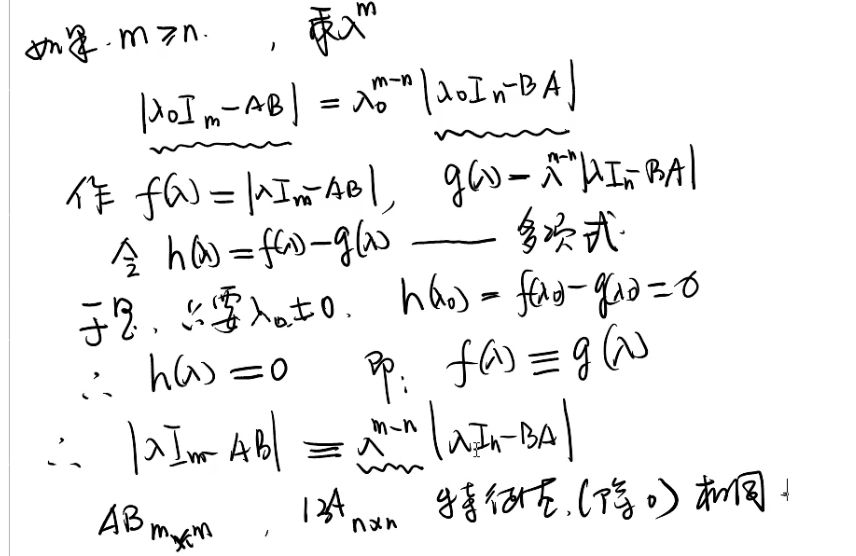 如果 m≥n. , 乘λ^m
|λ₀I_m-AB| = λ₀^{m-n} |λ₀I_n-BA|
作 f(λ)=|λI_m-AB|, g(λ)=λ^{m-n}|λI_n-BA|
令 h(λ)=f(λ)-g(λ) —— 多项式.
于是, 只要λ₀≠0. h(λ₀)=f(λ₀)-g(λ₀)=0
∴ h(λ)=0 即: f(λ)≡g(λ)
∴ |λI_m-AB| ≡ λ^{m-n} |λI_n-BA|
AB_{m×m} , BA_{n×n} 特征值.(除0) 相同.